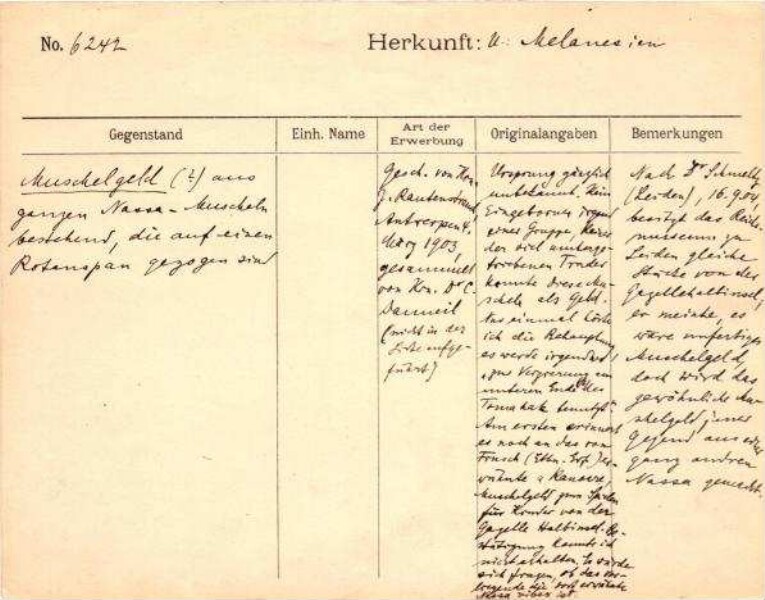 No. 6242
Herkunft: u. Melanesien
Gegenstand
Einh. Name
Art der
Erwerbung
Originalangaben
Bemerkungen
Muschelgeld (?) aus
ganzen Nassa-Muscheln
bestehend, die auf einen
Rotanspan gezogen sind
Gesch. von Hrn.
J. Rautenstrauch,
Antwerpen 4.
März 1903,
gesammelt
von Hrn. Dr C.
Danneil
(nicht in der
Liste aufge-
führt)
Ursprung gänzlich
unbekannt. Kein
Eingeborner irgend
einer Gruppe, keiner
der viel umherge-
triebenen Trader
kannte diese Mu-
scheln als Geld.
Nur einmal hörte
ich die Behauptung
es werde irgendwo
zur Verzierung am
unteren Ende des
Tomahak benutzt.
Am ersten erinnert
es noch an das von
Finsch (Ethn. Erf.) er-
wähnte
Muschelgeld zum Spielen
für Kinder von der
Gazelle Halbinsel. Be-
stätigung konnte ich
nicht erhalten. Es würde
sich fragen, ob das vor-
liegende die dort erwähnte
Nassa vibex ist
Nach Dr Schmeltz
(Leiden), 16.9.04,
besitzt das Reichs-
museum zu
Leiden gleiche
Stücke von der
Gazellehalbinsel;
er meinte, es
wäre unfertiges
Muschelgeld,
doch wird das
gewöhnliche Mu-
schelgeld jener
Gegend aus einer
ganz andren
Nassa gemacht.